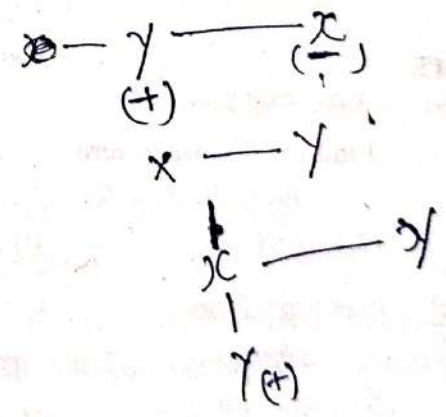 Y — x
(+) (-)
x — Y
x — y
Y (+)